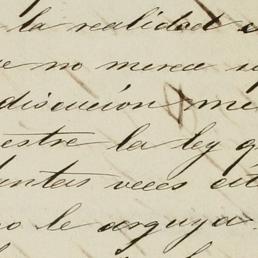 la realidad
no merca
discución me
estre la ley q
untas veces cit
no le arguya